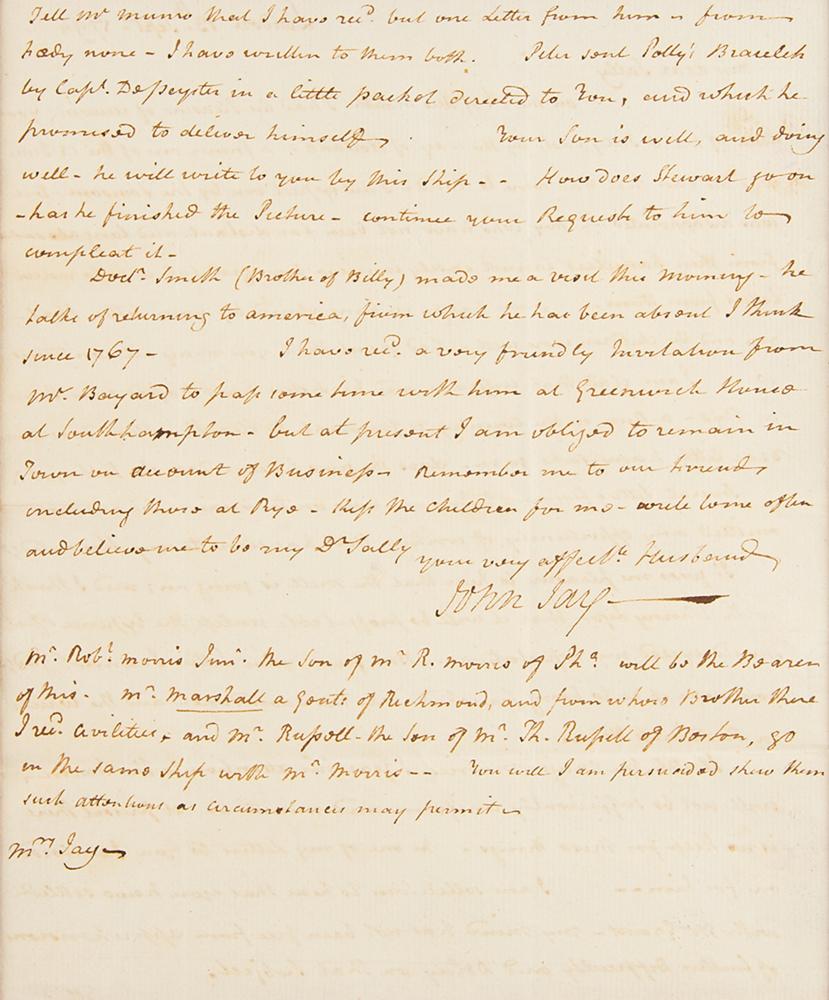 Tell Mr Munro that I have recd. but one Letter from him – from
hædy none – I have written to them both. Peter sent Polly's Bracelets
by Capt. Depeyster in a little packet directed to You, and which he
promised to deliver himself. Your Son is well, and doing
well – he will write to you by this Ship – – How does Stewart go on
– has he finished the Picture – continue your Requests to him to
compleat it –
Doctr. Smith (Brother of Billy) made me a visit this morning – he
talks of returning to america, from which he has been absent I think
since 1767 – I have recd. a very friendly Invitation from
Mr. Bayard to pass some time with him at Greenwich House
at Southhampton – but at present I am obliged to remain in
Town on account of Business – Remember me to our Friends,
including those at Rye – Kiss the children for me – write to me often
and believe me to be my Dr Sally
your very affecte. Husband
John Jay
Mr. Robt. morris Junr. the Son of Mr R. morris of Pha. will be the Bearer
of this. Mr. Marshall a Gentn. of Richmond, and from whose Brother there
I recd. civilities, and Mr. Russell – the Son of Mr. Th. Russell of Boston, go
in the same Ship with Mr. Morris – – You will I am persuaded shew them
such attentions as circumstances may permit –
Mrs. Jay